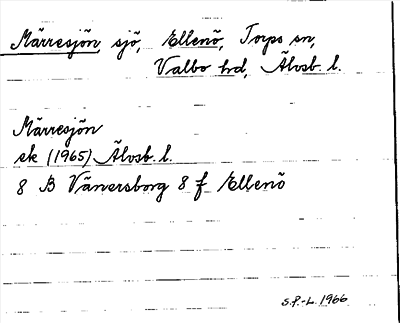 Märresjön, sjö, Ellenö, Torps sn,
Valbo hd, Älvsb. l.
Märresjön
ek (1965) Älvsb. l.
8 B Vänersborg 8 f Ellenö
S.P.-L. 1966